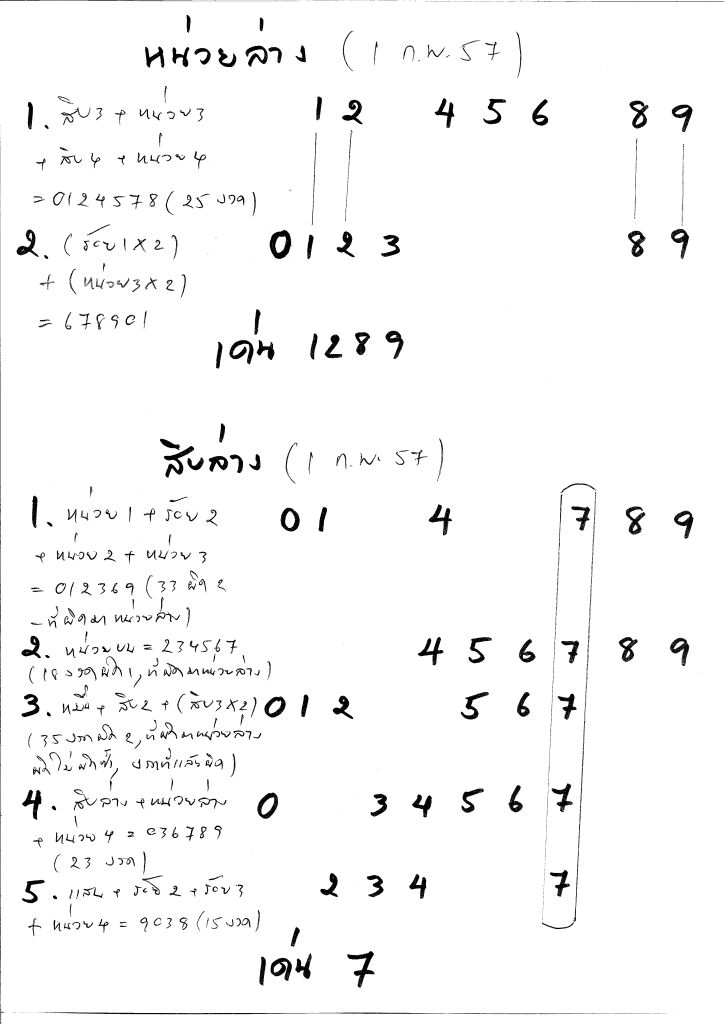 หน่วยล่าง (1 ก.พ. 57)
1. สิบ3 + หน่วย3 1 2 4 5 6 8 9
+ สิบ4 + หน่วย4
= 0124578 (25 งวด)
2. (ร้อย1X2) 0 1 2 3 8 9
+ (หน่วย3X2)
= 678901
เด่น 1289
สิบล่าง (1 ก.พ. 57)
1. หน่วย1 + ร้อย2 0 1 4 7 8 9
+ หน่วย2 + หน่วย3
= 012369 (33 ผิด 2
- ที่ผิดมาหน่วยล่าง)
2. หน่วยบน = 234567 4 5 6 7 8 9
(18 งวดผิด 1, ที่ผิดมาหน่วยล่าง)
3. หมื่น + สิบ2 + (สิบ3X2) 0 1 2 5 6 7
(35 งวด ผิด 2, ที่ผิดมาหน่วยล่าง
ผิดไม่ผิดซ้ำ, งวดที่แล้วผิด)
4. สิบล่าง + หน่วยล่าง 0 3 4 5 6 7
+ หน่วย4 = 036789
(23 งวด)
5. แสน + ร้อย2 + ร้อย3 2 3 4 7
+ หน่วย4 = 9038 (15 งวด)
เด่น 7